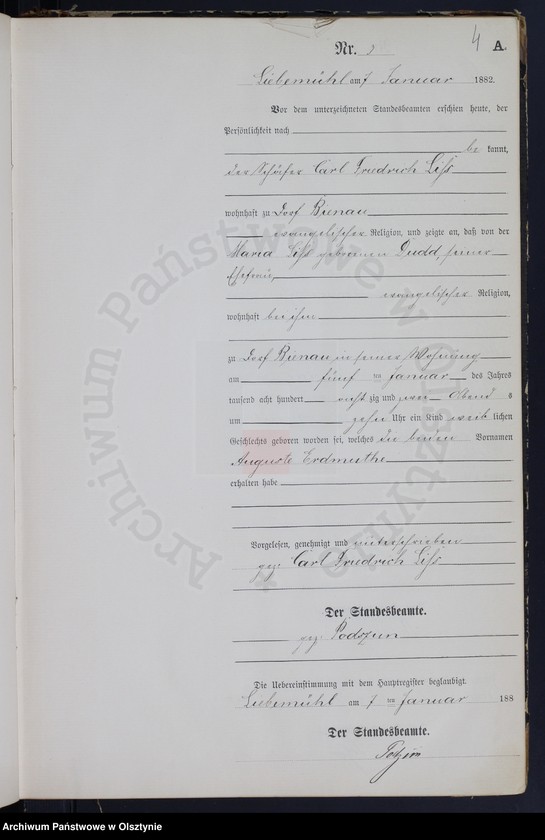 4 A.
Nr. 3
Liebemühl am 7 Januar 1882.
Vor dem unterzeichneten Standesbeamten erschien heute, der
Persönlichkeit nach
be kannt,
der Schäfer Carl Friedrich Liss
wohnhaft zu Dorf Bienau
evangelischer Religion, und zeigte an, daß von der
Maria Liss gebornen Dudd, seiner
Ehefrau,
evangelischer Religion,
wohnhaft bei ihm
zu Dorf Bienau in seiner Wohnung
am fünf ten Januar des Jahres
tausend acht hundert acht zig und zwei Abend s
um zehn Uhr ein Kind weib lichen
Geschlechts geboren worden sei, welches die beiden Vornamen
Auguste Erdmuthe
erhalten habe
Vorgelesen, genehmigt und unterschrieben
gez: Carl Friedrich Liss
Der Standesbeamte.
gez:
Die Uebereinstimmung mit dem Hauptregister beglaubigt.
Liebemühl am 7 ten Januar 188
Der Standesbeamte.
Archiwum Państwowe w Olsztynie
Archiwum Państwowe w Olsztynie